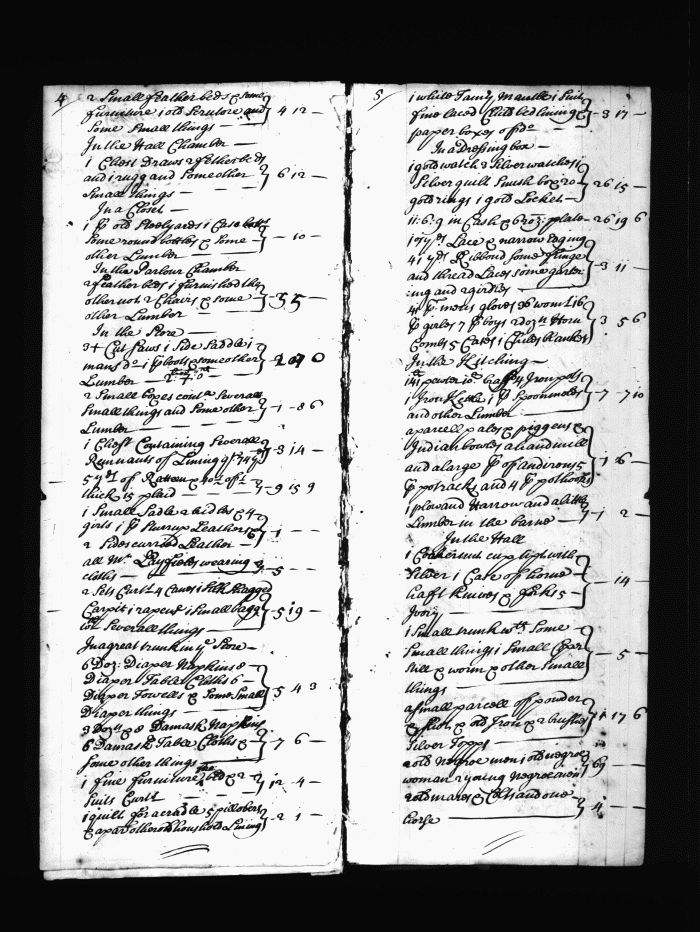 4
2 Small feather beds & some
furniture 1 old Scrutore and
4 12 —
Some Small things —
In the Hall Chamber —
1 Chest Draws 2 fether beds
and 1 rugg and Some other
6 12 —
Small things —
In a Closet —
1 pr old Steelyards 1 Case
Some round bottles & Some —
— 10 —
other Lumber —
In the Parlour Chamber
2 feather beds 1 furnished the
other not 2 Chairs & some
35 —
other Lumber —
In the Store —
34 Cut Saws 1 Side Saddle 1
mans do 1 pr boots & some other
Lumber
2 Small boxes contg Severall
Small things and Some other
1 - 8 6
Lumber —
1 Chest Containing Severall
Remnants of Lining
3 14 —
5 yds of
9 15 9
thick 15 plaid —
1 Small Sadle 2 bridles
girls 1 pr Sturrup Leathers
1 —
2 Sides curried Leather —
all Mr wearing
5 —
cloths —
2 Sets Curtn 4 Canes 1
Carpit 1 1 Small
5 19 —
Severall things —
In a great trunk in ye Store —
6 Doz: Diaper Napkins 8 —
Diaper Table Cloths 6 —
Diaper Towells & Some Small
5 4 3
Diaper things —
3 Dozn & 8 Damask Napkins
6 Damask Table Cloths & —
7 6 —
Some other things —
1 fine furniture bed & 2
12 - 4 —
Suits Curtn
1 quilt for a cradle 5 pillobers
& a par other old houshold Lining
2 1 —
5
1 white Tammy Mantle 1 Suit
fine laced Child bed lining
3 17 —
paper boxes of do —
In a dressing box —
1 gold watch 3 Silver watches 1
Silver guilt Snush box 20
26 15 —
gold rings 1 gold Locket —
11: 6: 9 in Cash & 6 oz: plate
26 19 6
yds Lace & narrow Edging
41 yds Ribbond Some fringe
and thread Laces some garter-
3 11 —
ing and 2 girdles —
pr mens gloves 36 womens 16
pr girles 7 pr boys 2 dozn Horn
3 5 6
Combs 5 Cards 1 Childs blanket
In the Kitching —
141 pewter 10 brass 4 Iron pots
1 Iron Kettle 1 pr Spoonmolds
7 - 7 10
and other Lumber
a parcell pales & piggens &
Indian bowles a hand mill
and a large pr of andirons 5
1 16 —
pr potracks and 4 pr pothooks
1 plow and Harrow and a little
Lumber in the barne —
1 - 2 —
In the Hall
1 Cokernut cup tipt with
Silver 1 Case of horne —
14 —
haft knives & forks 5 —
Ivory —
1 Small trunk wth Some —
Small things 1 Small Coper
5 —
Still & worm & other Small
things —
a small parcell of powder
& Shot & old Iron & 2 brushes
1 17 6
Silver Topps —
2 old Negroe men 1 old negroe
woman 2 young Negroe men
69 —
2 old mares & Colts and one —
4 —
horse —